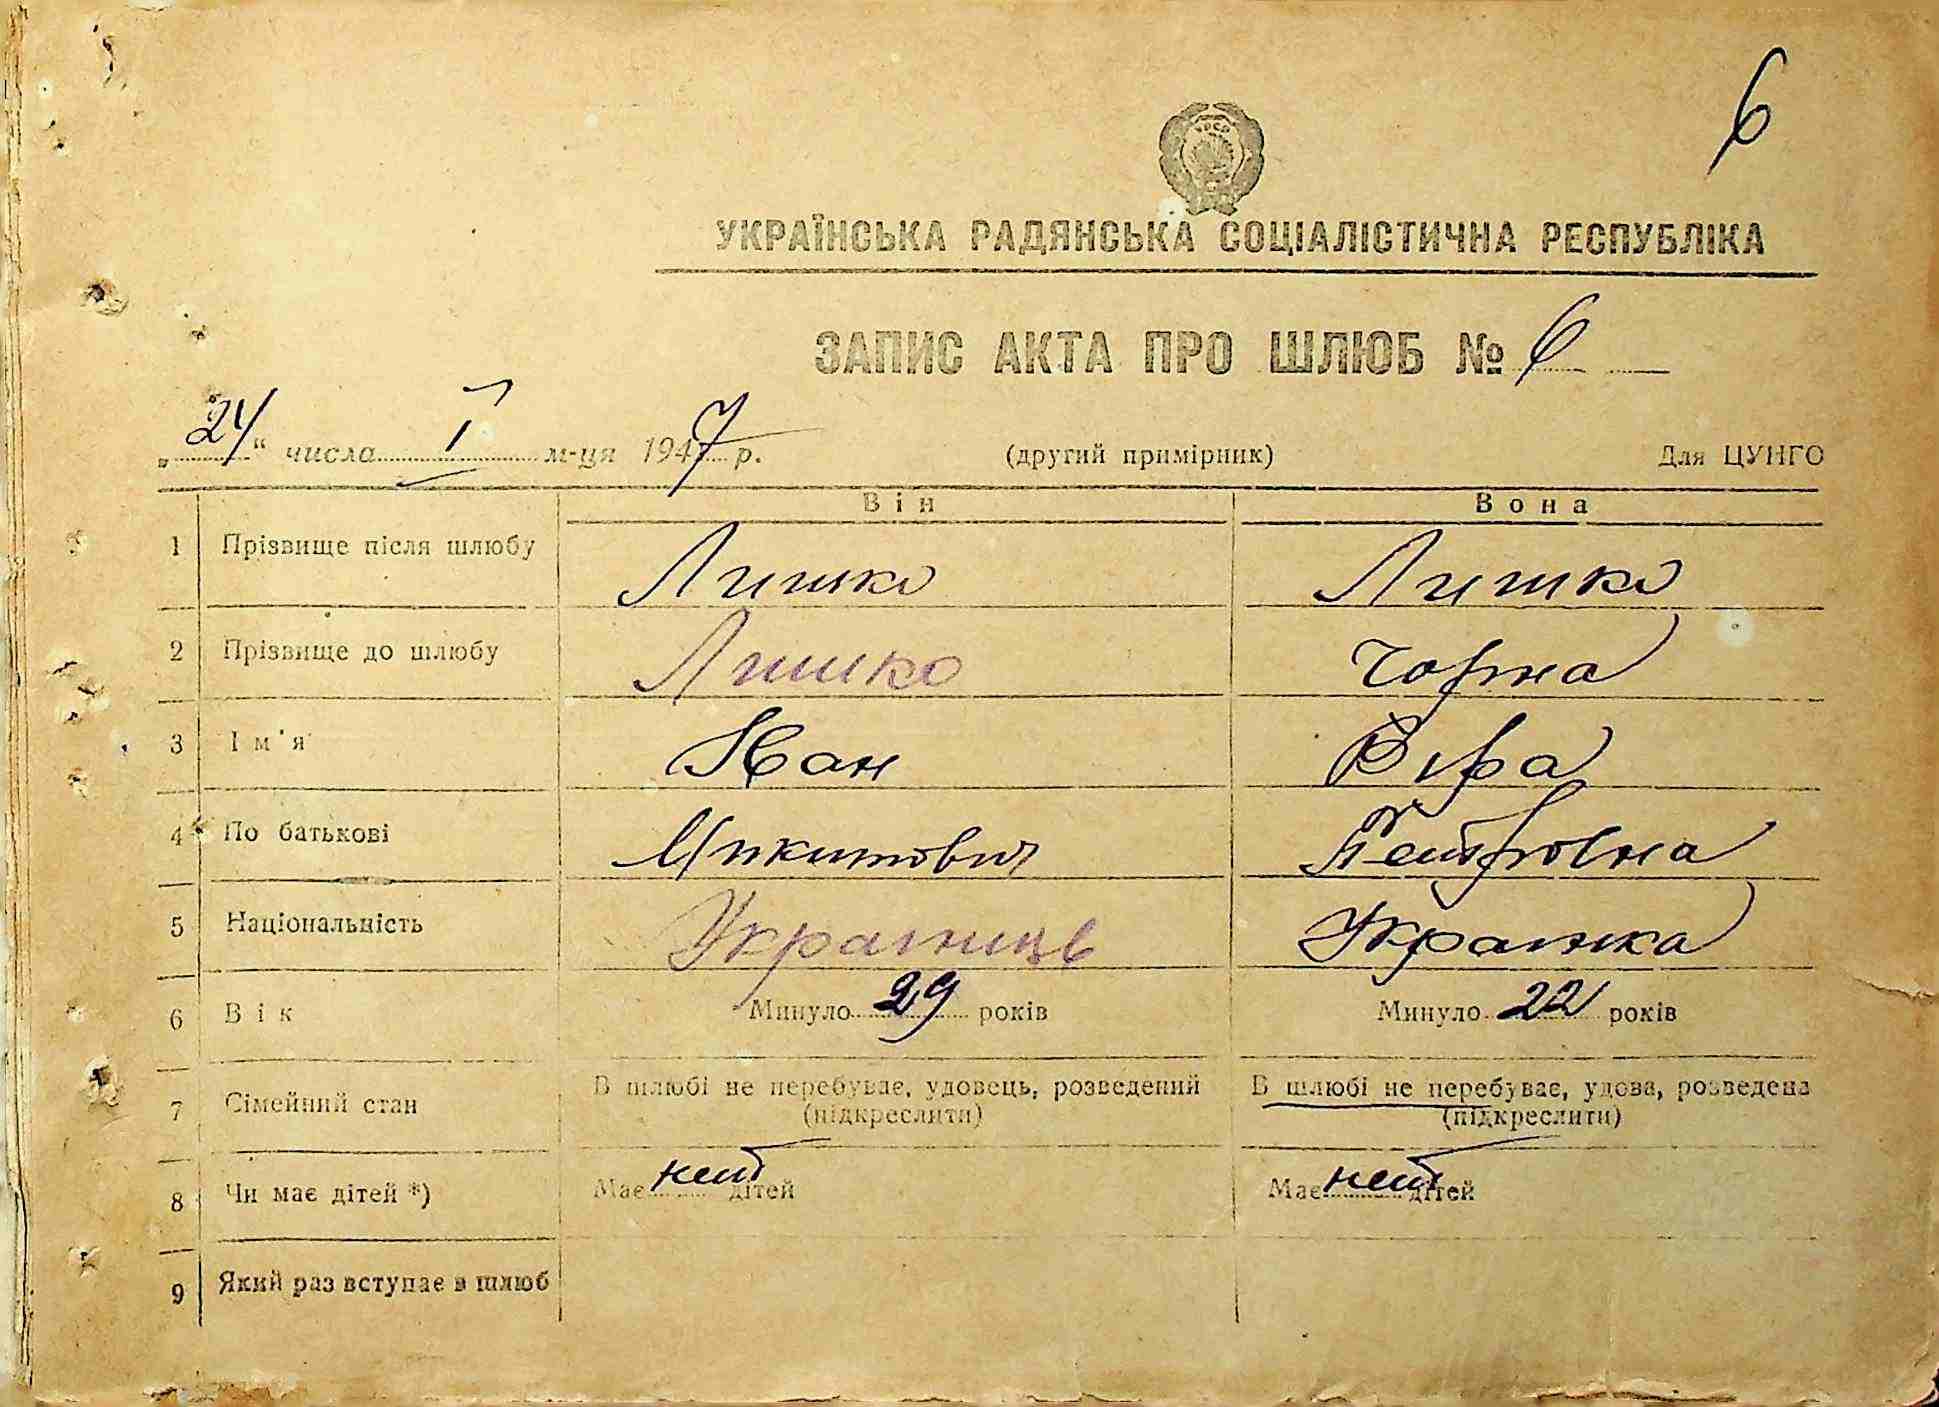 6
УКРАЇНСЬКА РАДЯНСЬКА СОЦІАЛІСТИЧНА РЕСПУБЛІКА
ЗАПИС АКТА ПРО ШЛЮБ № 6
„24“ числа I м-ця 1947 р. (другий примірник) Для ЦУНГО
Він Вона
1 Прізвище після шлюбу Лишко Лишко
2 Прізвище до шлюбу Лишко Чорна
3 Ім'я Іван Віра
4 По батькові Микитович Петровна
5 Національність Украінець Украінка
6 Вік Минуло 29 років Минуло 22 років
7 Сімейний стан В шлюбі не перебуває, удовець, розведений В шлюбі не перебуває, удова, розведена
(підкреслити) (підкреслити)
8 Чи має дітей *) Має нет дітей Має нет дітей
9 Який раз вступає в шлюб